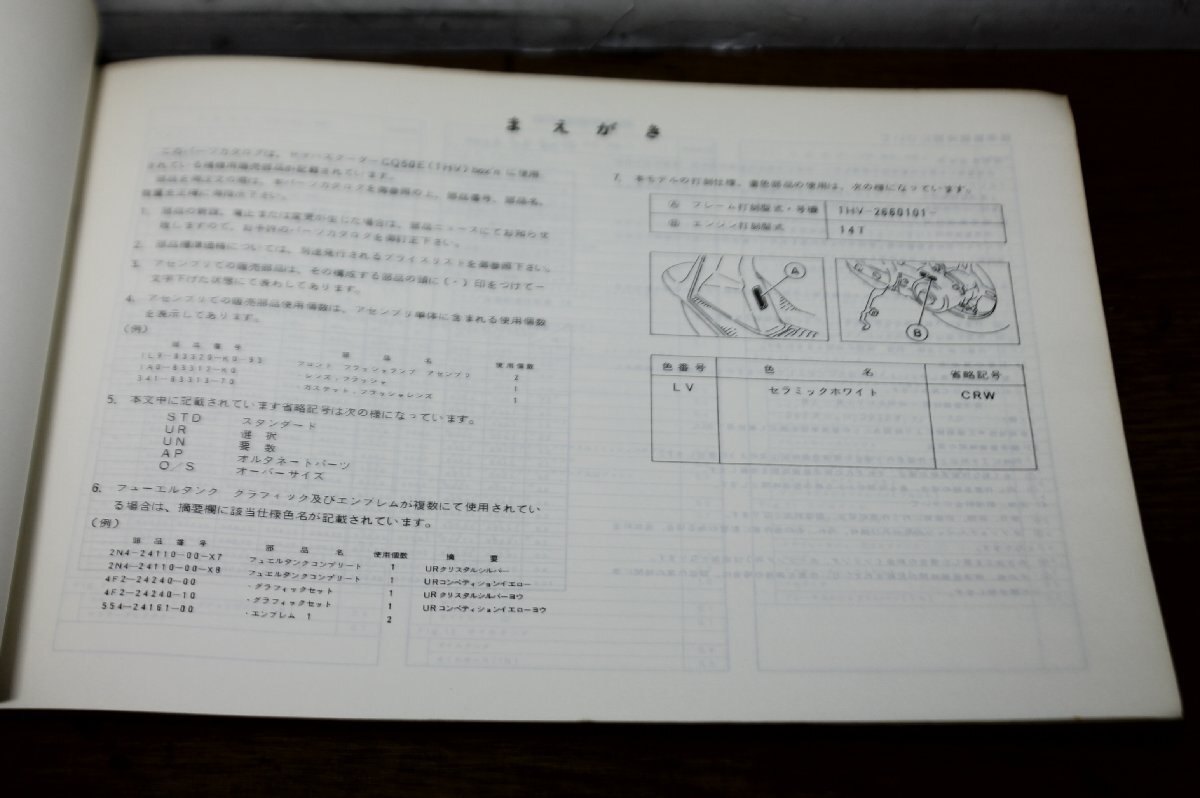 まえがき
このパーツカタログは、ヤマハスクーターCQ50E(1HV)
されている補修用販売部品が記載されています。
部品を発注の際は、本パーツカタログを御参照の上、部品番号、部品名、
数量を正確に
1. 部品の新設、廃止または変更が生じた場合は、部品ニュースにてお知らせ
致しますので、お手許のパーツカタログを御訂正下さい。
2. 部品標準価格については、別途発行されるプライスリストを御参照下さい。
3. アセンブリでの販売部品は、その構成する部品の頭に(・)印をつけて一
文字下げた状態にて表わしてあります。
4. アセンブリでの販売部品使用個数は、アセンブリ単体に含まれる使用個数
を表示してあります。
(例)
部品番号 部品名 使用個数
1L9-83320-K0-93 フロント フラッシャランプ アセンブリ 2
1A0-83312-K0 ・レンズ・フラッシャ 1
341-83313-70 ・ガスケット・フラッシャレンズ 1
5. 本文中に記載されています省略記号は次の様になっています。
STD スタンダード
UR 選択
UN 要数
AP オルタネートパーツ
O/S オーバーサイズ
6. フューエルタンク グラフィック及びエンブレムが複数にて使用されてい
る場合は、摘要欄に該当仕様色名が記載されています。
(例)
部品番号 部品名 使用個数 摘要
2N4-24110-00-X7 フュエルタンクコンプリート 1 URクリスタルシルバー
2N4-24110-00-X8 フュエルタンクコンプリート 1 URコンペティションイエロー
4F2-24240-00 ・グラフィックセット 1 URクリスタルシルバーヨウ
4F2-24240-10 ・グラフィックセット 1 URコンペティションイエローヨウ
554-24161-00 ・エンブレム 1 2
7. 本モデルの打刻仕様、着色部品の使用は、次の様になっています。
Ⓐ フレーム打刻型式・号機 1HV-2660101-
Ⓑ エンジン打刻型式 14T
A
B
色番号 色名 省略記号
LV セラミックホワイト CRW